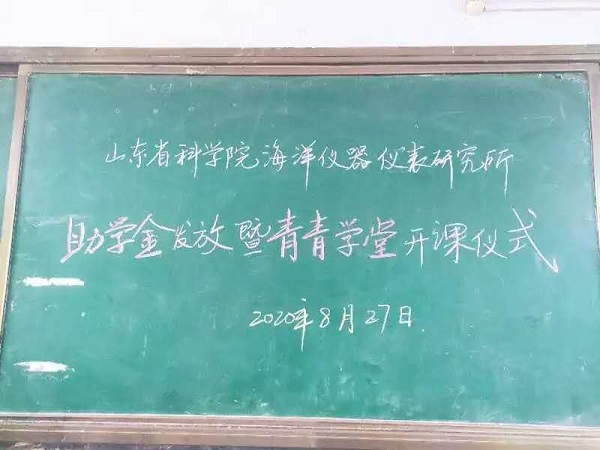 山东省科学院海洋仪器仪表研究所
助学金发放暨青青学堂开课仪式
2020年8月27日